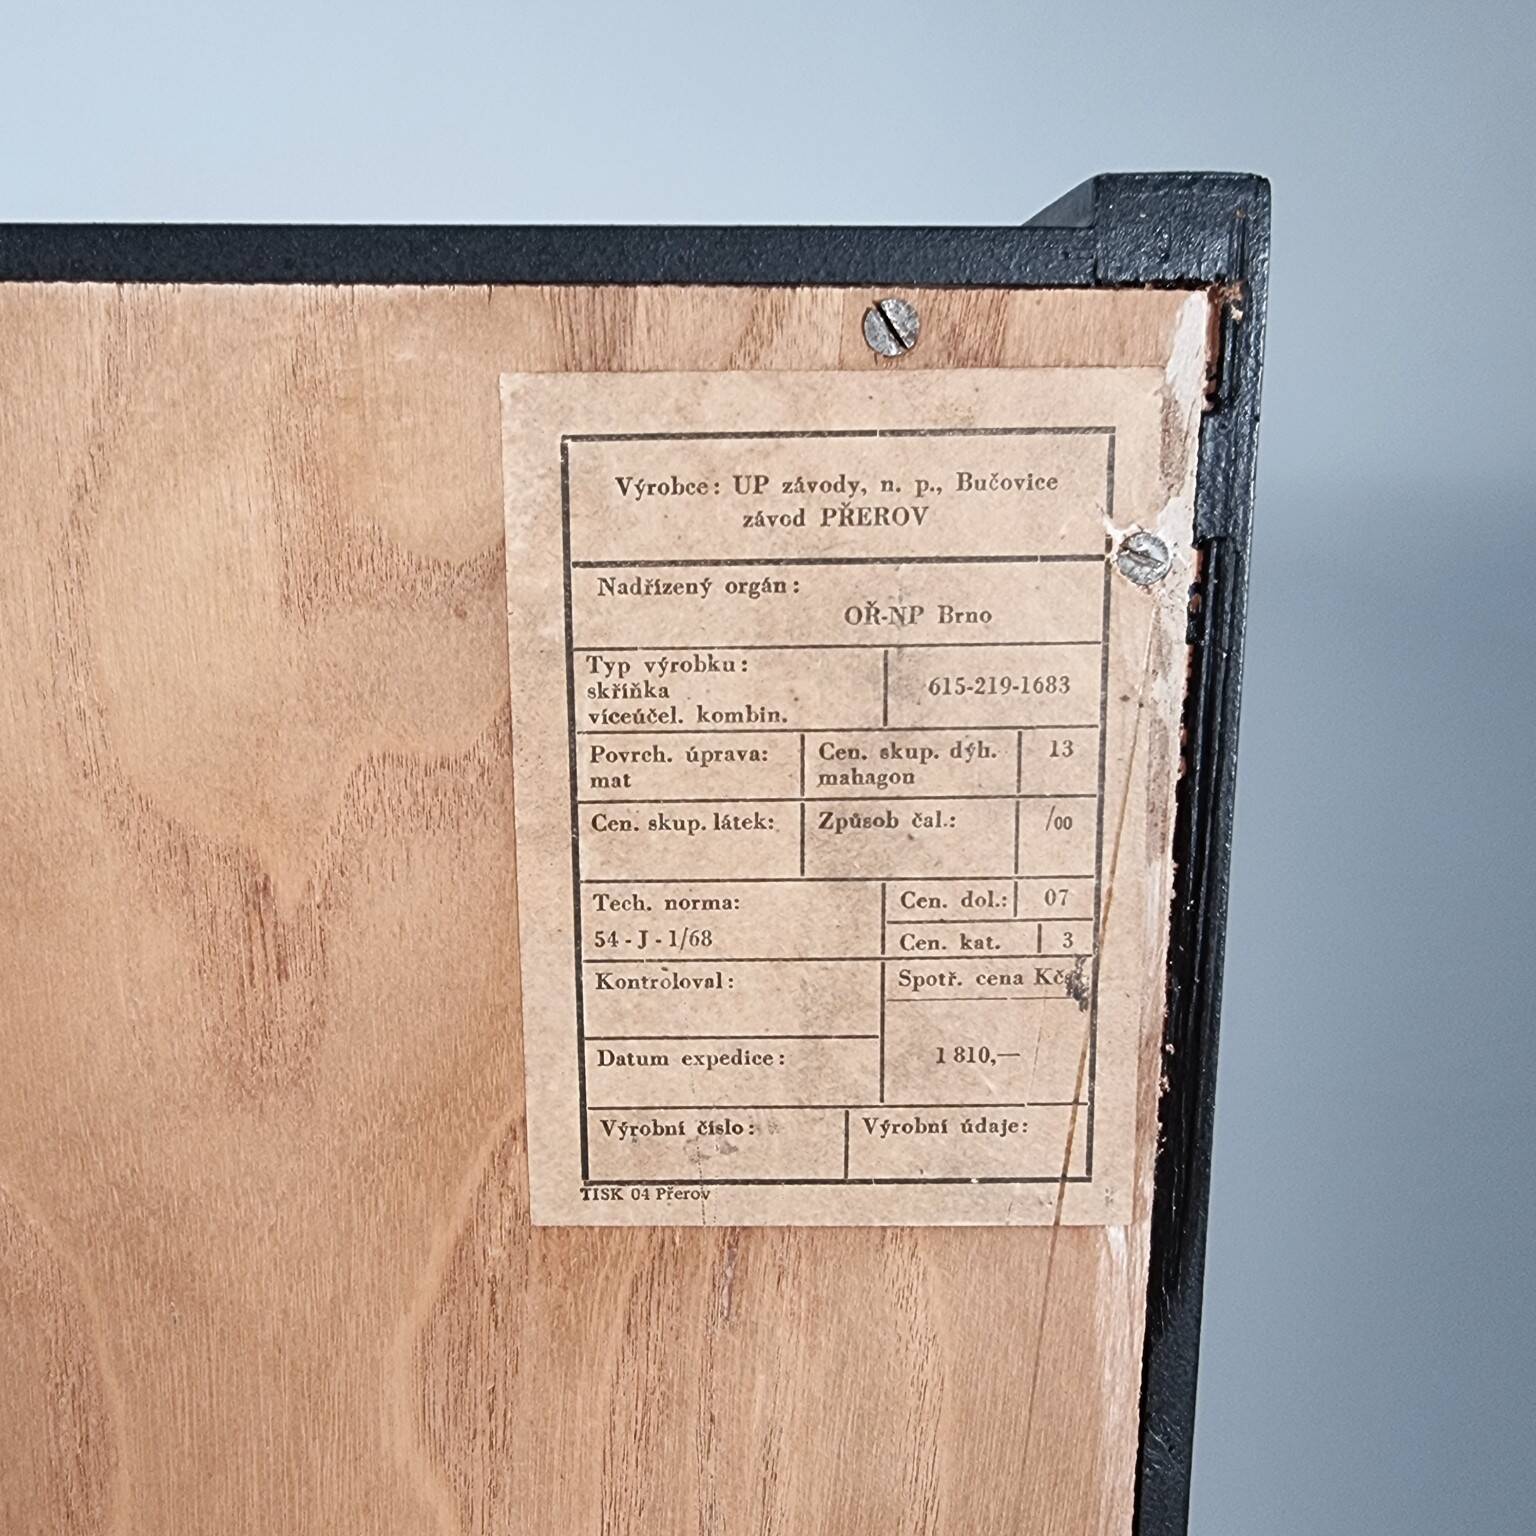 Výrobce: UP závody, n. p., Bučovice
závod PŘEROV
Nadřízený orgán:
OŘ-NP Brno
Typ výrobku:
skříňka
víceúčel. kombin.
615-219-1683
Povrch. úprava:
mat
Cen. skup. dýh.
mahagon
13
Cen. skup. látek:
Způsob čal.:
/00
Tech. norma:
54 - J - 1/68
Cen. dol.:
07
Cen. kat.
3
Kontroloval:
Spotř. cena Kčs
1 810,—
Datum expedice:
Výrobní číslo:
Výrobní údaje:
TISK 04 Přerov